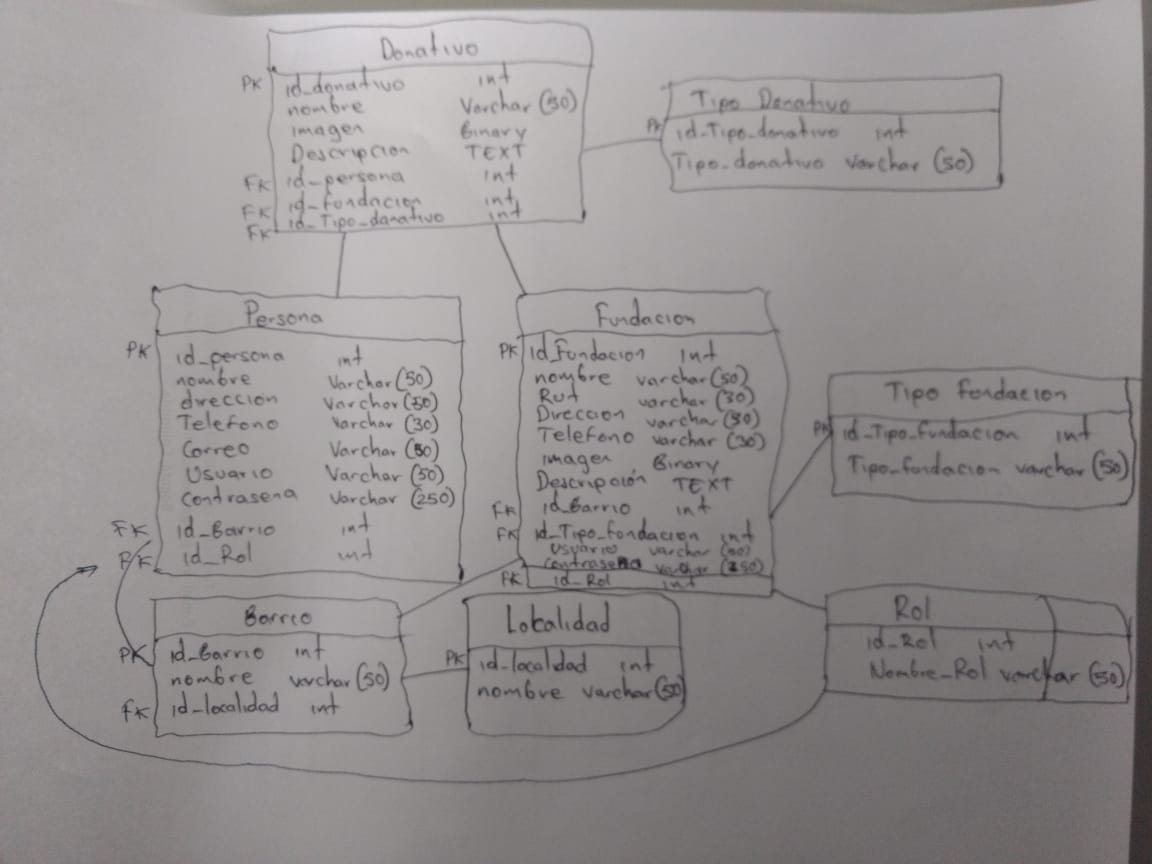 Donativo
PK id_donativo int
nombre Varchar (30)
imagen Binary
Descripcion TEXT
FK id_persona int
FK id_fundacion int
FK id_Tipo_danativo int
Tipo Donativo
PK id_Tipo_donativo int
Tipo_donativo varchar (50)
Persona
PK id_persona int
nombre Varchar (50)
direccion Varchar (50)
Telefono Varchar (30)
Correo Varchar (50)
Usuario Varchar (50)
contrasena Varchar (250)
FK id_Barrio int
FK id_Rol int
Fundacion
PK id_Fundacion int
nombre varchar (50)
Rut varchar (30)
Direccion varchar (50)
Telefono varchar (30)
imagen Binary
Descripcion TEXT
FK id_Barrio int
FK id_Tipo_fondacion int
usuario varchar (50)
contrasena varchar (250)
FK id_Rol int
Tipo fondacion
PK id_Tipo_fundacion int
Tipo_fondacion varchar (50)
Barrio
PK id_Barrio int
nombre varchar (50)
FK id_localidad int
Localidad
PK id_localdad int
nombre varchar (50)
Rol
id_Rol int
Nombre_Rol varchar (50)